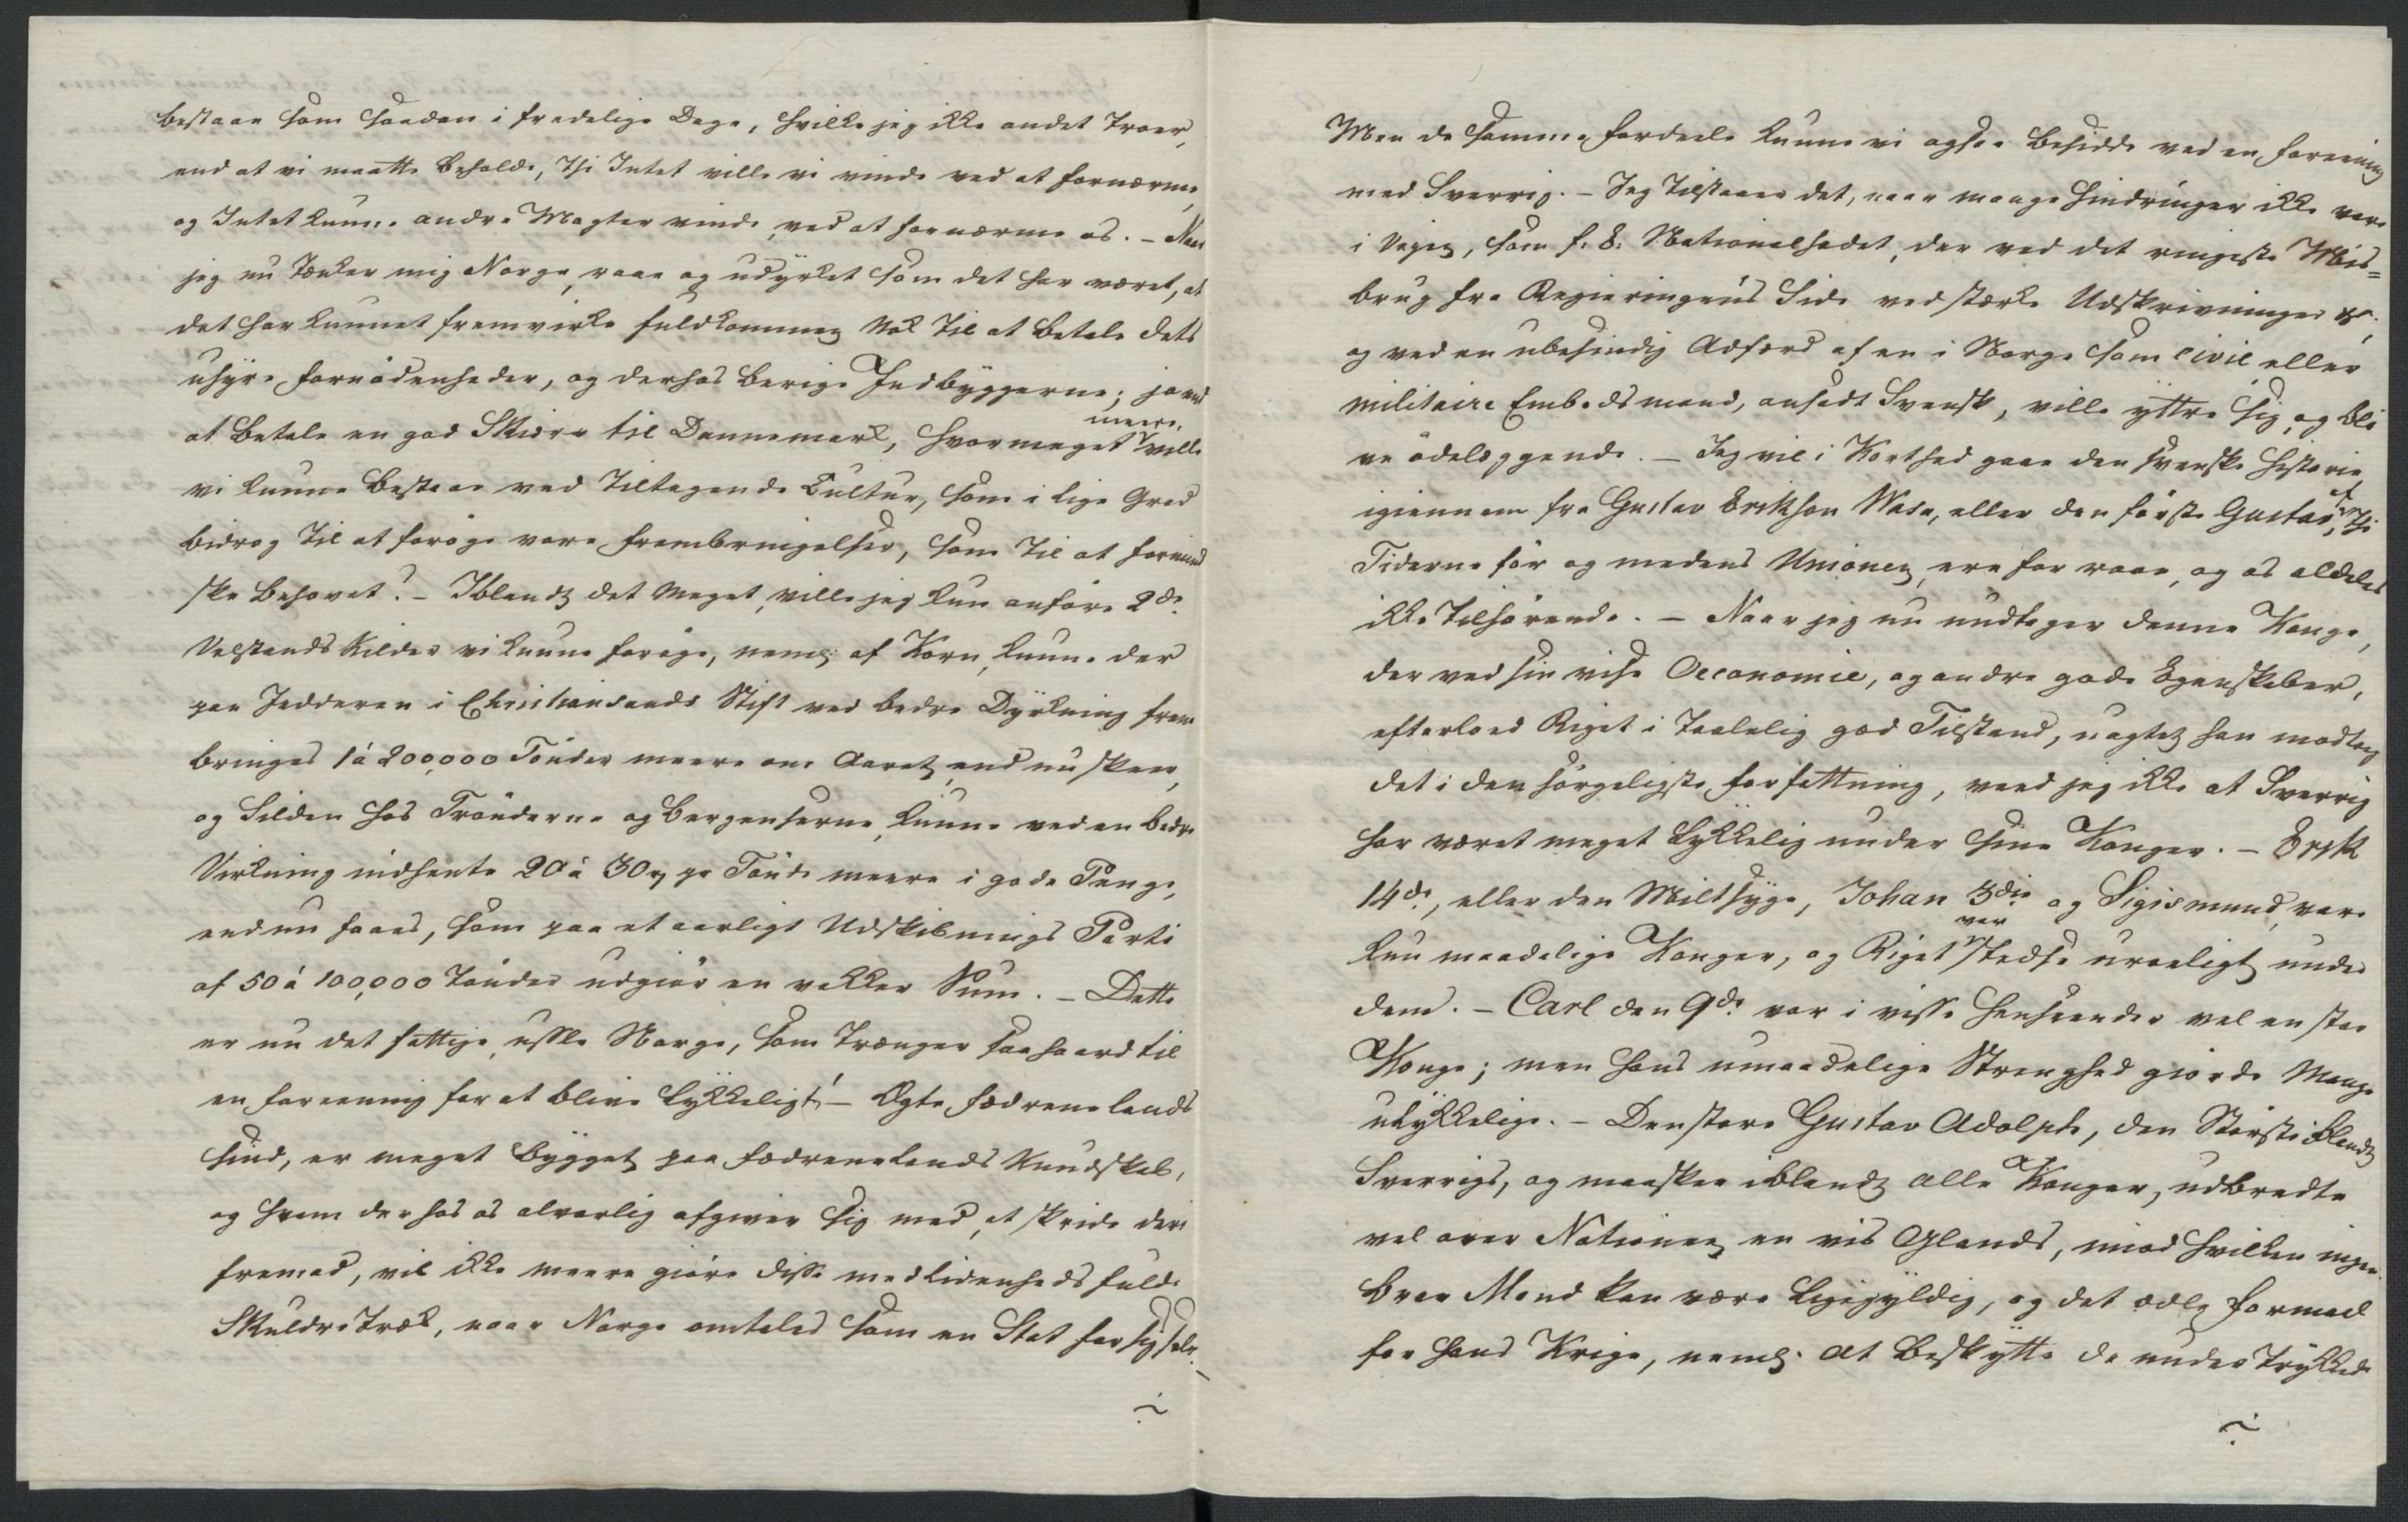 bestaae som saadan i fredelige Dage, hvilke jeg ikke andet troer,
end at vi maatte beholde, thi Intet ville vi vinde ved at fornærme,
og Intet kunne andre Magter vinde, ved at fornærme os. – Naar
jeg nu tænker mig Norge, raae og udyrket som det har været, at
det har kunnet fremvirke fuldkommen Nok til at betale dets
uhyre fornödenheder, og derhos berige Indbyggerne; ja end
at betale en god Skiærv til Dannemark, hvormeget meere ville
vi kunne bestaae ved tiltagende Cultur, som i lige Grad
bidrog til at foröge vore frembringelser, som til at formind
ske behovet? – Iblandt det Meget, ville jeg kun anföre 2de
Velstands Kilder vi kunne foröge, neml: af Korn, kunne der
paa Jedderen i Christiansands Stift ved bedre Dyrkning frem
bringes 1 à 200,000 Tönder meere om Aaret, end nu skeer,
og Silden hos Trönderne og Bergenserne, kunne ved en bedre
Virkning indhente 20 à 30 pr Tönde meere i gode Penge,
end nu faaes, som paa et aarligt Udskibnings Parti
af 50 à 100,000 Tönder udgiör en vakker Sum. – Dette
er nu det fattige, usle Norge, som trænger saa haardt til
en foreening for at blive lykkeligt! – Ægte fædrenelands
sind, er meget bygget paa fædrenelands Kundskab,
og hvem der hos os alvorlig afgiver sig med, at skride deri
fremad, vil ikke meere giöre disse medlidenhedsfulde
Skuldretræk, naar Norge omtales som en Stat for sig selv. –
Men de samme fordeele kunne vi ogsaa besidde ved en foreening
med Sverrig. – Jeg tilstaaer det, naar mange Hindringer ikke vare
i Vejen, som f. E: Nationalhadet, der ved det ringeste Mis=
brug fra Regieringens Side ved stærke Udskrivninger &c,
og ved en ubesindig Adfærd af en i Norge som civil eller
militaire Embedsmand, ansadt Svensk, ville yttre sig, og bli
ve ödeleggende. – Jeg vil i Korthed gaae den svenske Historie
igiennem fra Gustav Erikson Wasa, eller den förste Gustav af, thi
Tiderne för og medens Unionen, ere for raae, og os aldeles
ikke tilhörende. – Naar jeg nu undtager denne Konge,
der ved sin vise Oeconomie, og andre gode Egenskaber,
efterloed Riget i taalelig god Tilstand, uagtet han modtog
det i den sörgeligste forfattning, veed jeg ikke at Sverrig
har været meget lykkelig under sine Konger. – Erik
14de, eller den Miltsyge, Johan 3die og Sigismund, vare
kun maadelige Konger, og Riget var stedse uroeligt under
dem. – Carl den 9de var i visse Henseender vel en stor
Konge; men hans umaadelige Strenghed giorde Mange
ulykkelige. – Den store Gustav Adolph, den Störste iblandt
Sverrigs, og maaskee iblandt alle Konger, udbredte
vel over Nationen en vis Glands, imod hvilken ingen
brav Mand kan være ligegyldig, og det ædle formaal
for hans Krige, neml: at beskytte de undertrykkede